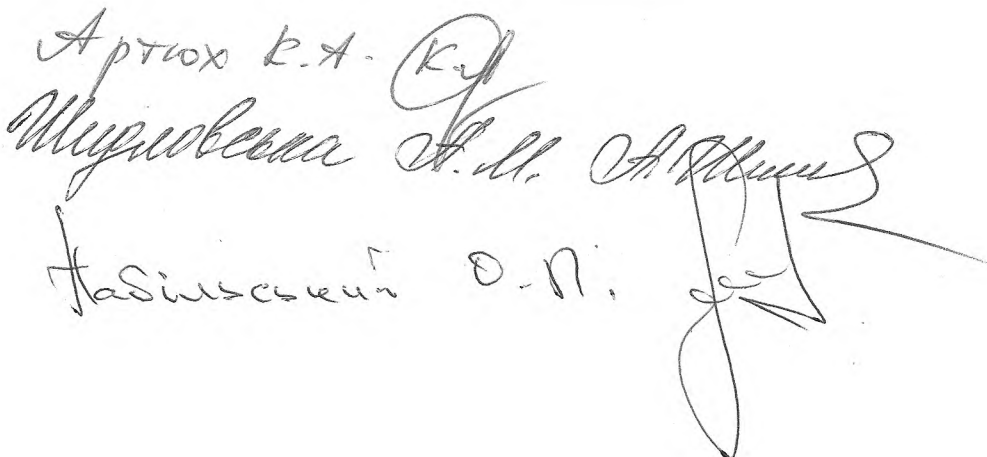 Артюх К.А.
Шидловська А.М.
Набільський О.П.